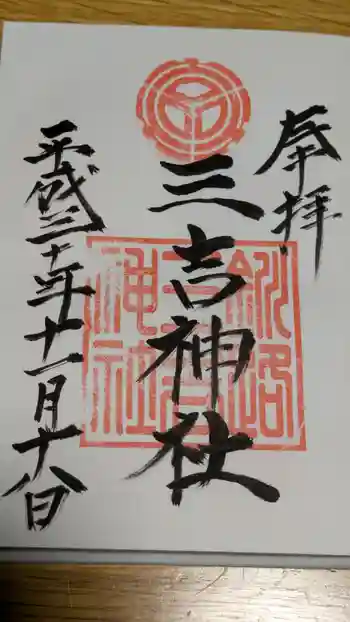 奉拝
三吉神社
釧路
三吉
神社
平成三十年十一月十八日